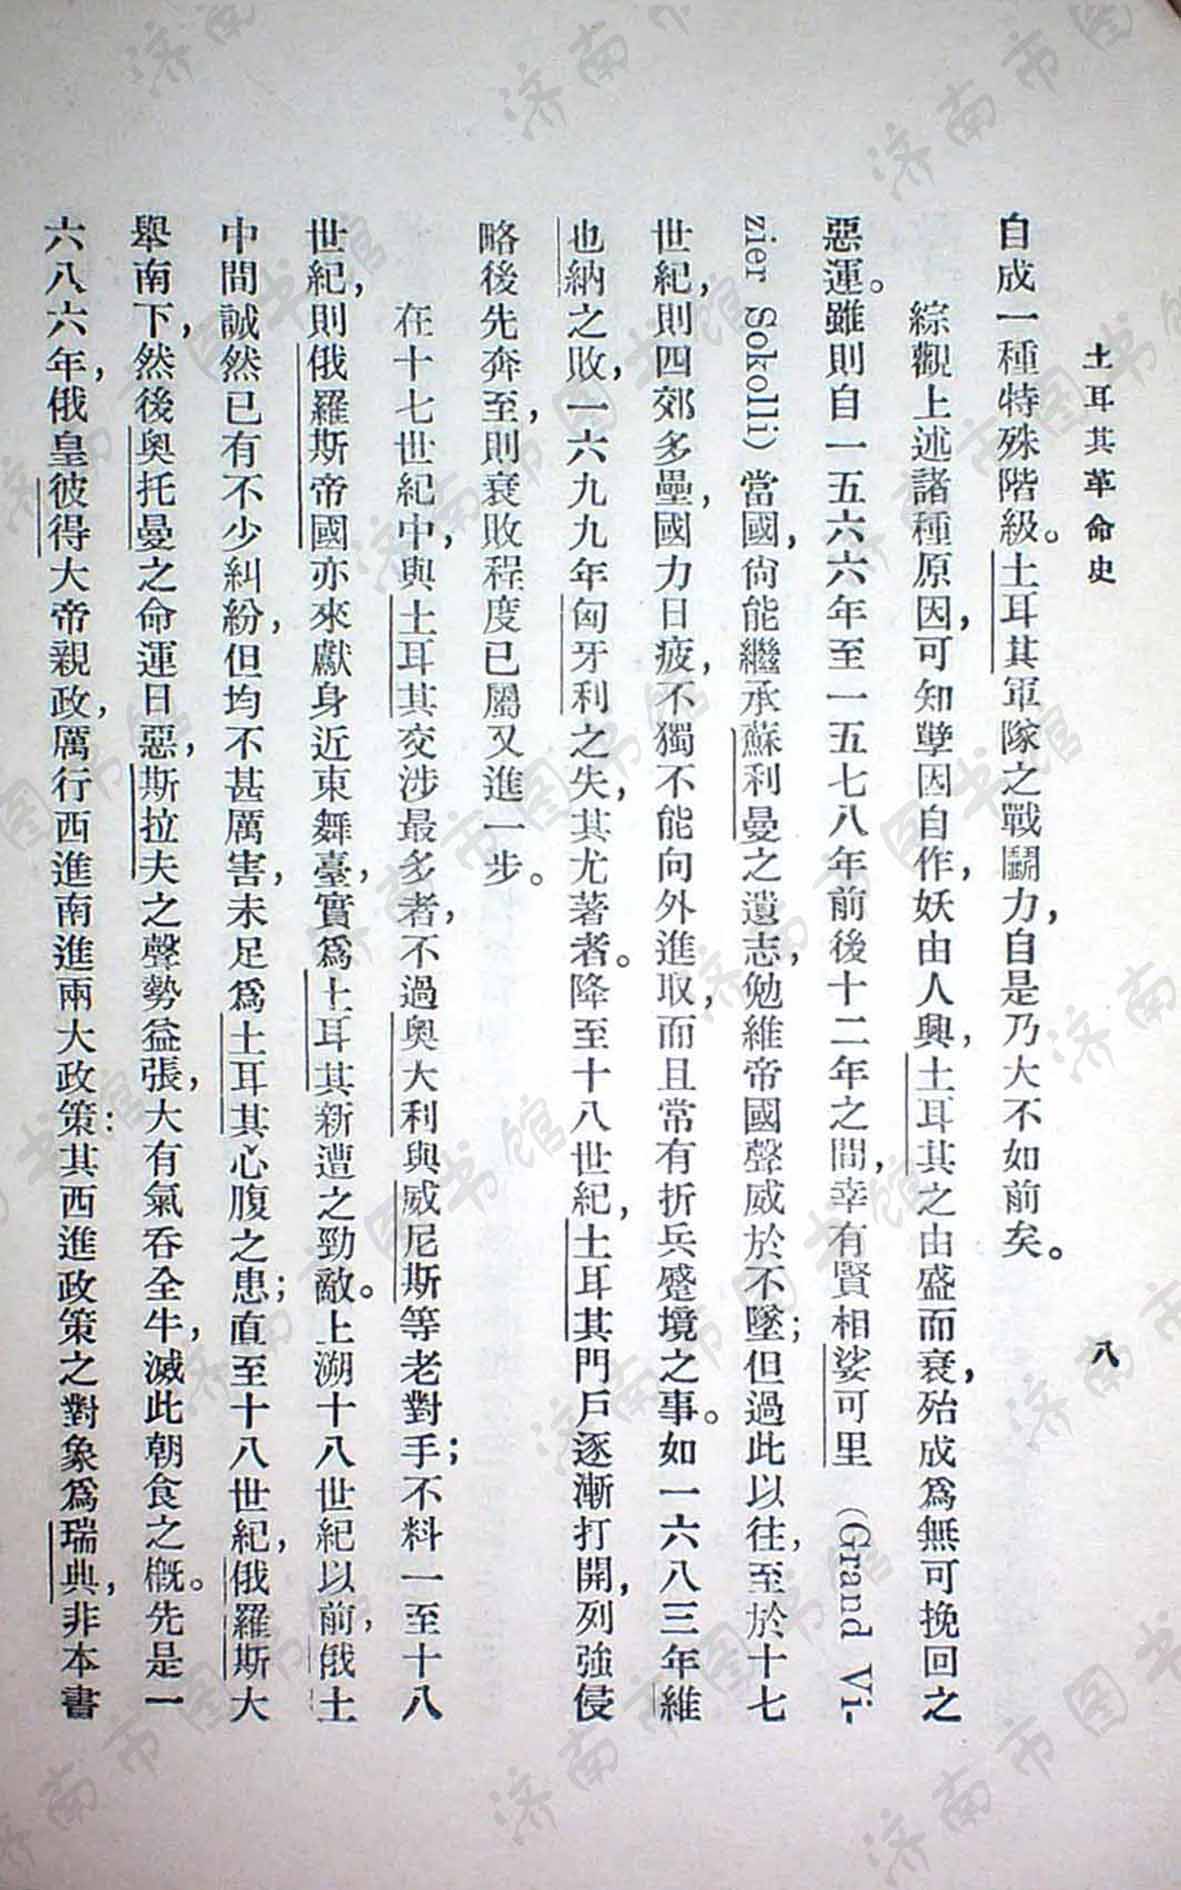 土耳其革命史　八
自成一種特殊階級。土耳其軍隊之戰鬭力，自是乃大不如前矣。
綜觀上述諸種原因，可知孽因自作，妖由人興，土耳其之由盛而衰，殆成爲無可挽回之
惡運。雖則自一五六六年至一五七八年前後十二年之間，幸有賢相娑可里（Grand Vi-
zier Sokolli）當國，尙能繼承蘇利曼之遺志，勉維帝國聲威於不墜；但過此以往，至於十七
世紀，則四郊多壘，國力日疲，不獨不能向外進取，而且常有折兵蹙境之事。如一六八三年維
也納之敗，一六九九年匈牙利之失，其尤著者。降至十八世紀，土耳其門戶逐漸打開，列強侵
略後先奔至，則衰敗程度已屬又進一步。
在十七世紀中，與土耳其交涉最多者，不過奧大利與威尼斯等老對手；不料一至十八
世紀，則俄羅斯帝國亦來獻身近東舞臺，實爲土耳其新遭之勁敵。上溯十八世紀以前，俄土
中間誠然已有不少糾紛，但均不甚厲害，未足爲土耳其心腹之患；直至十八世紀，俄羅斯大
舉南下，然後奧托曼之命運日惡，斯拉夫之聲勢益張，大有氣吞全牛，滅此朝食之概。先是一
六八六年，俄皇彼得大帝親政，厲行西進南進兩大政策：其西進政策之對象爲瑞典，非本書
濟南市图书馆